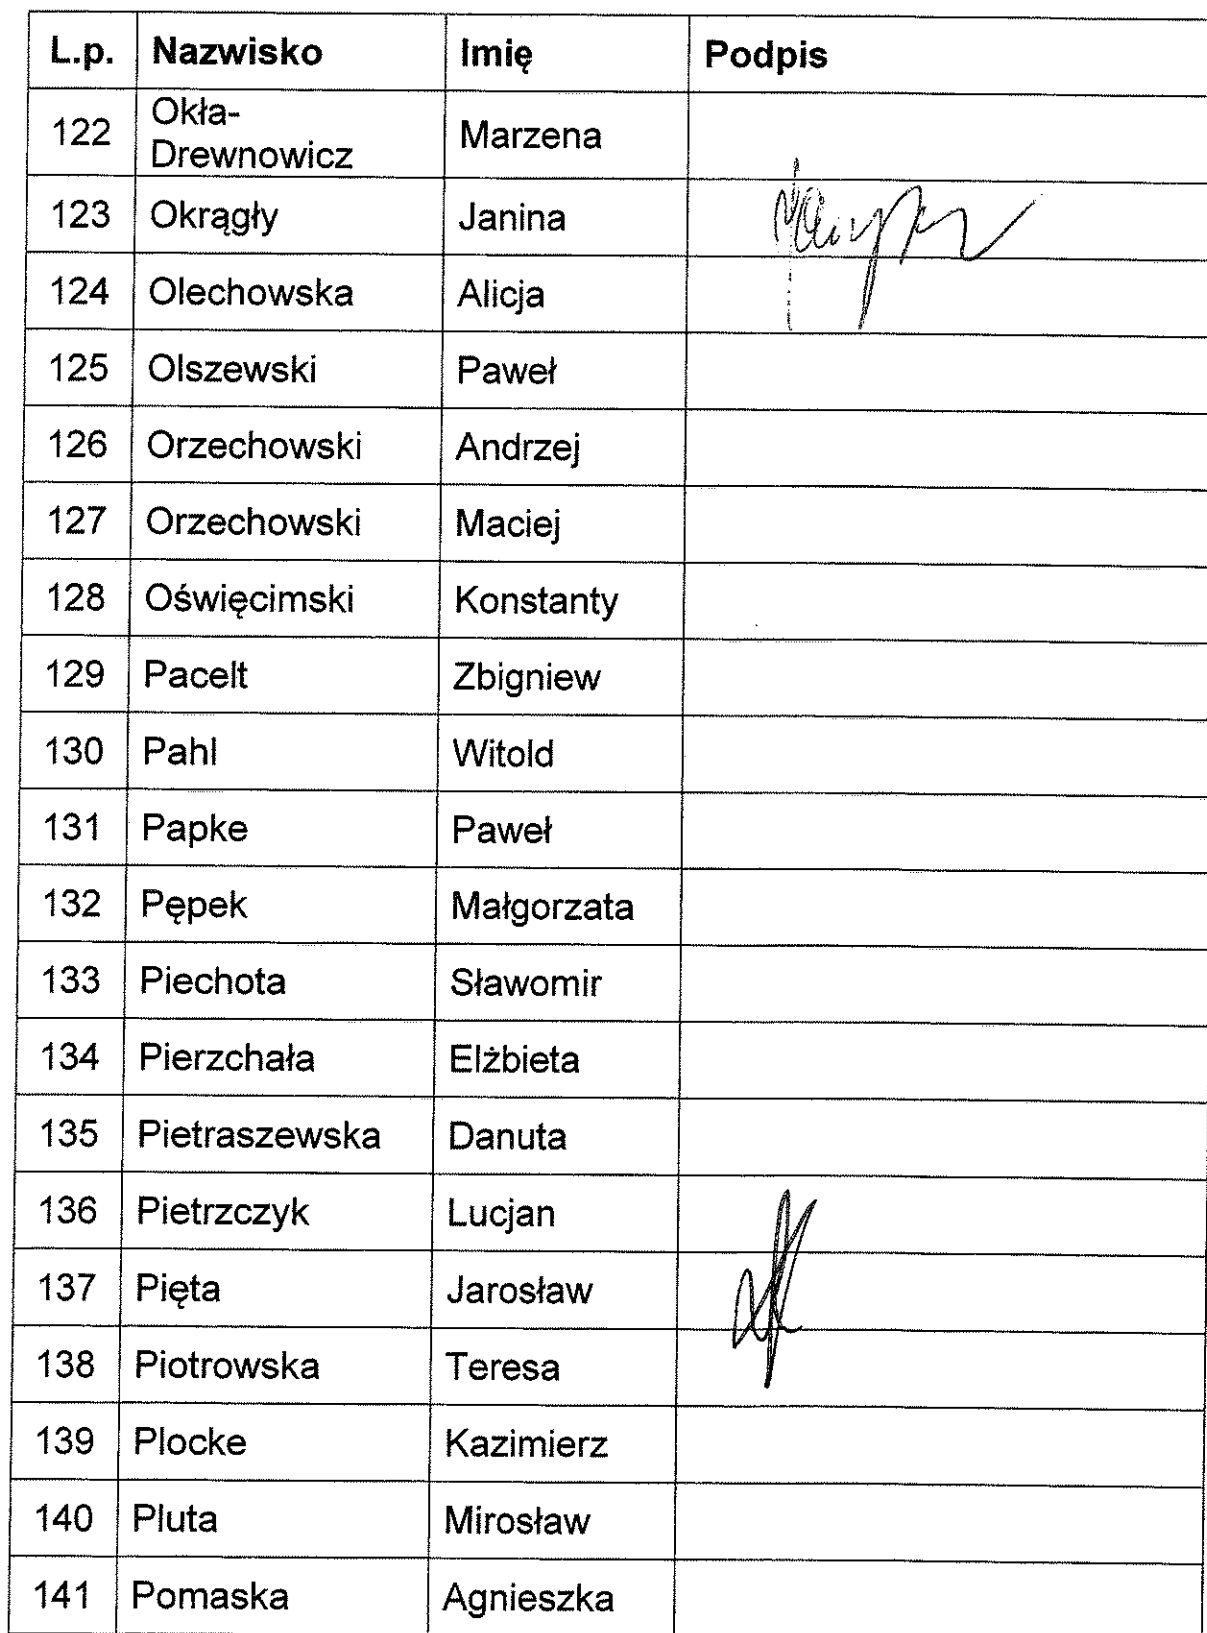 L.p. Nazwisko Imię Podpis
122 Okła-
Drewnowicz Marzena
123 Okrągły Janina
124 Olechowska Alicja
125 Olszewski Paweł
126 Orzechowski Andrzej
127 Orzechowski Maciej
128 Oświęcimski Konstanty
129 Pacelt Zbigniew
130 Pahl Witold
131 Papke Paweł
132 Pępek Małgorzata
133 Piechota Sławomir
134 Pierzchała Elżbieta
135 Pietraszewska Danuta
136 Pietrzczyk Lucjan
137 Pięta Jarosław
138 Piotrowska Teresa
139 Plocke Kazimierz
140 Pluta Mirosław
141 Pomaska Agnieszka